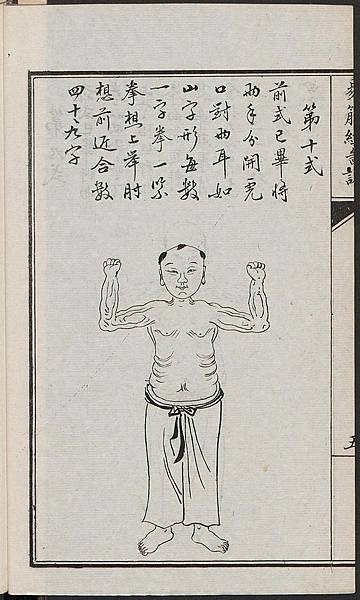 第十式
前式已畢將
兩手分開虎
口對兩耳如
山字形每數
一字拳一緊
拳想上舉肘
想前近合數
四十九字
易筋經
五